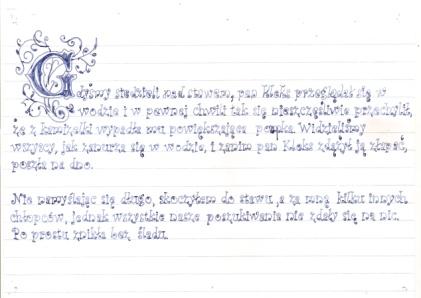 Gdyśmy siedzieli nad stawem, pan Kleks przeglądał się w
wodzie i w pewnej chwili tak się nieszczęśliwie przechylił,
że z kamizelki wypadła mu powiększająca pompka. Widzieliśmy
wszyscy, jak zanurza się w wodzie, i zanim pan Kleks zdążył ją złapać,
poszła na dno.
Nie namyślając się długo, skoczyłem do stawu, a za mną kilku innych
chłopców, jednak wszystkie nasze poszukiwania nie zdały się na nic.
Po prostu znikła bez śladu.